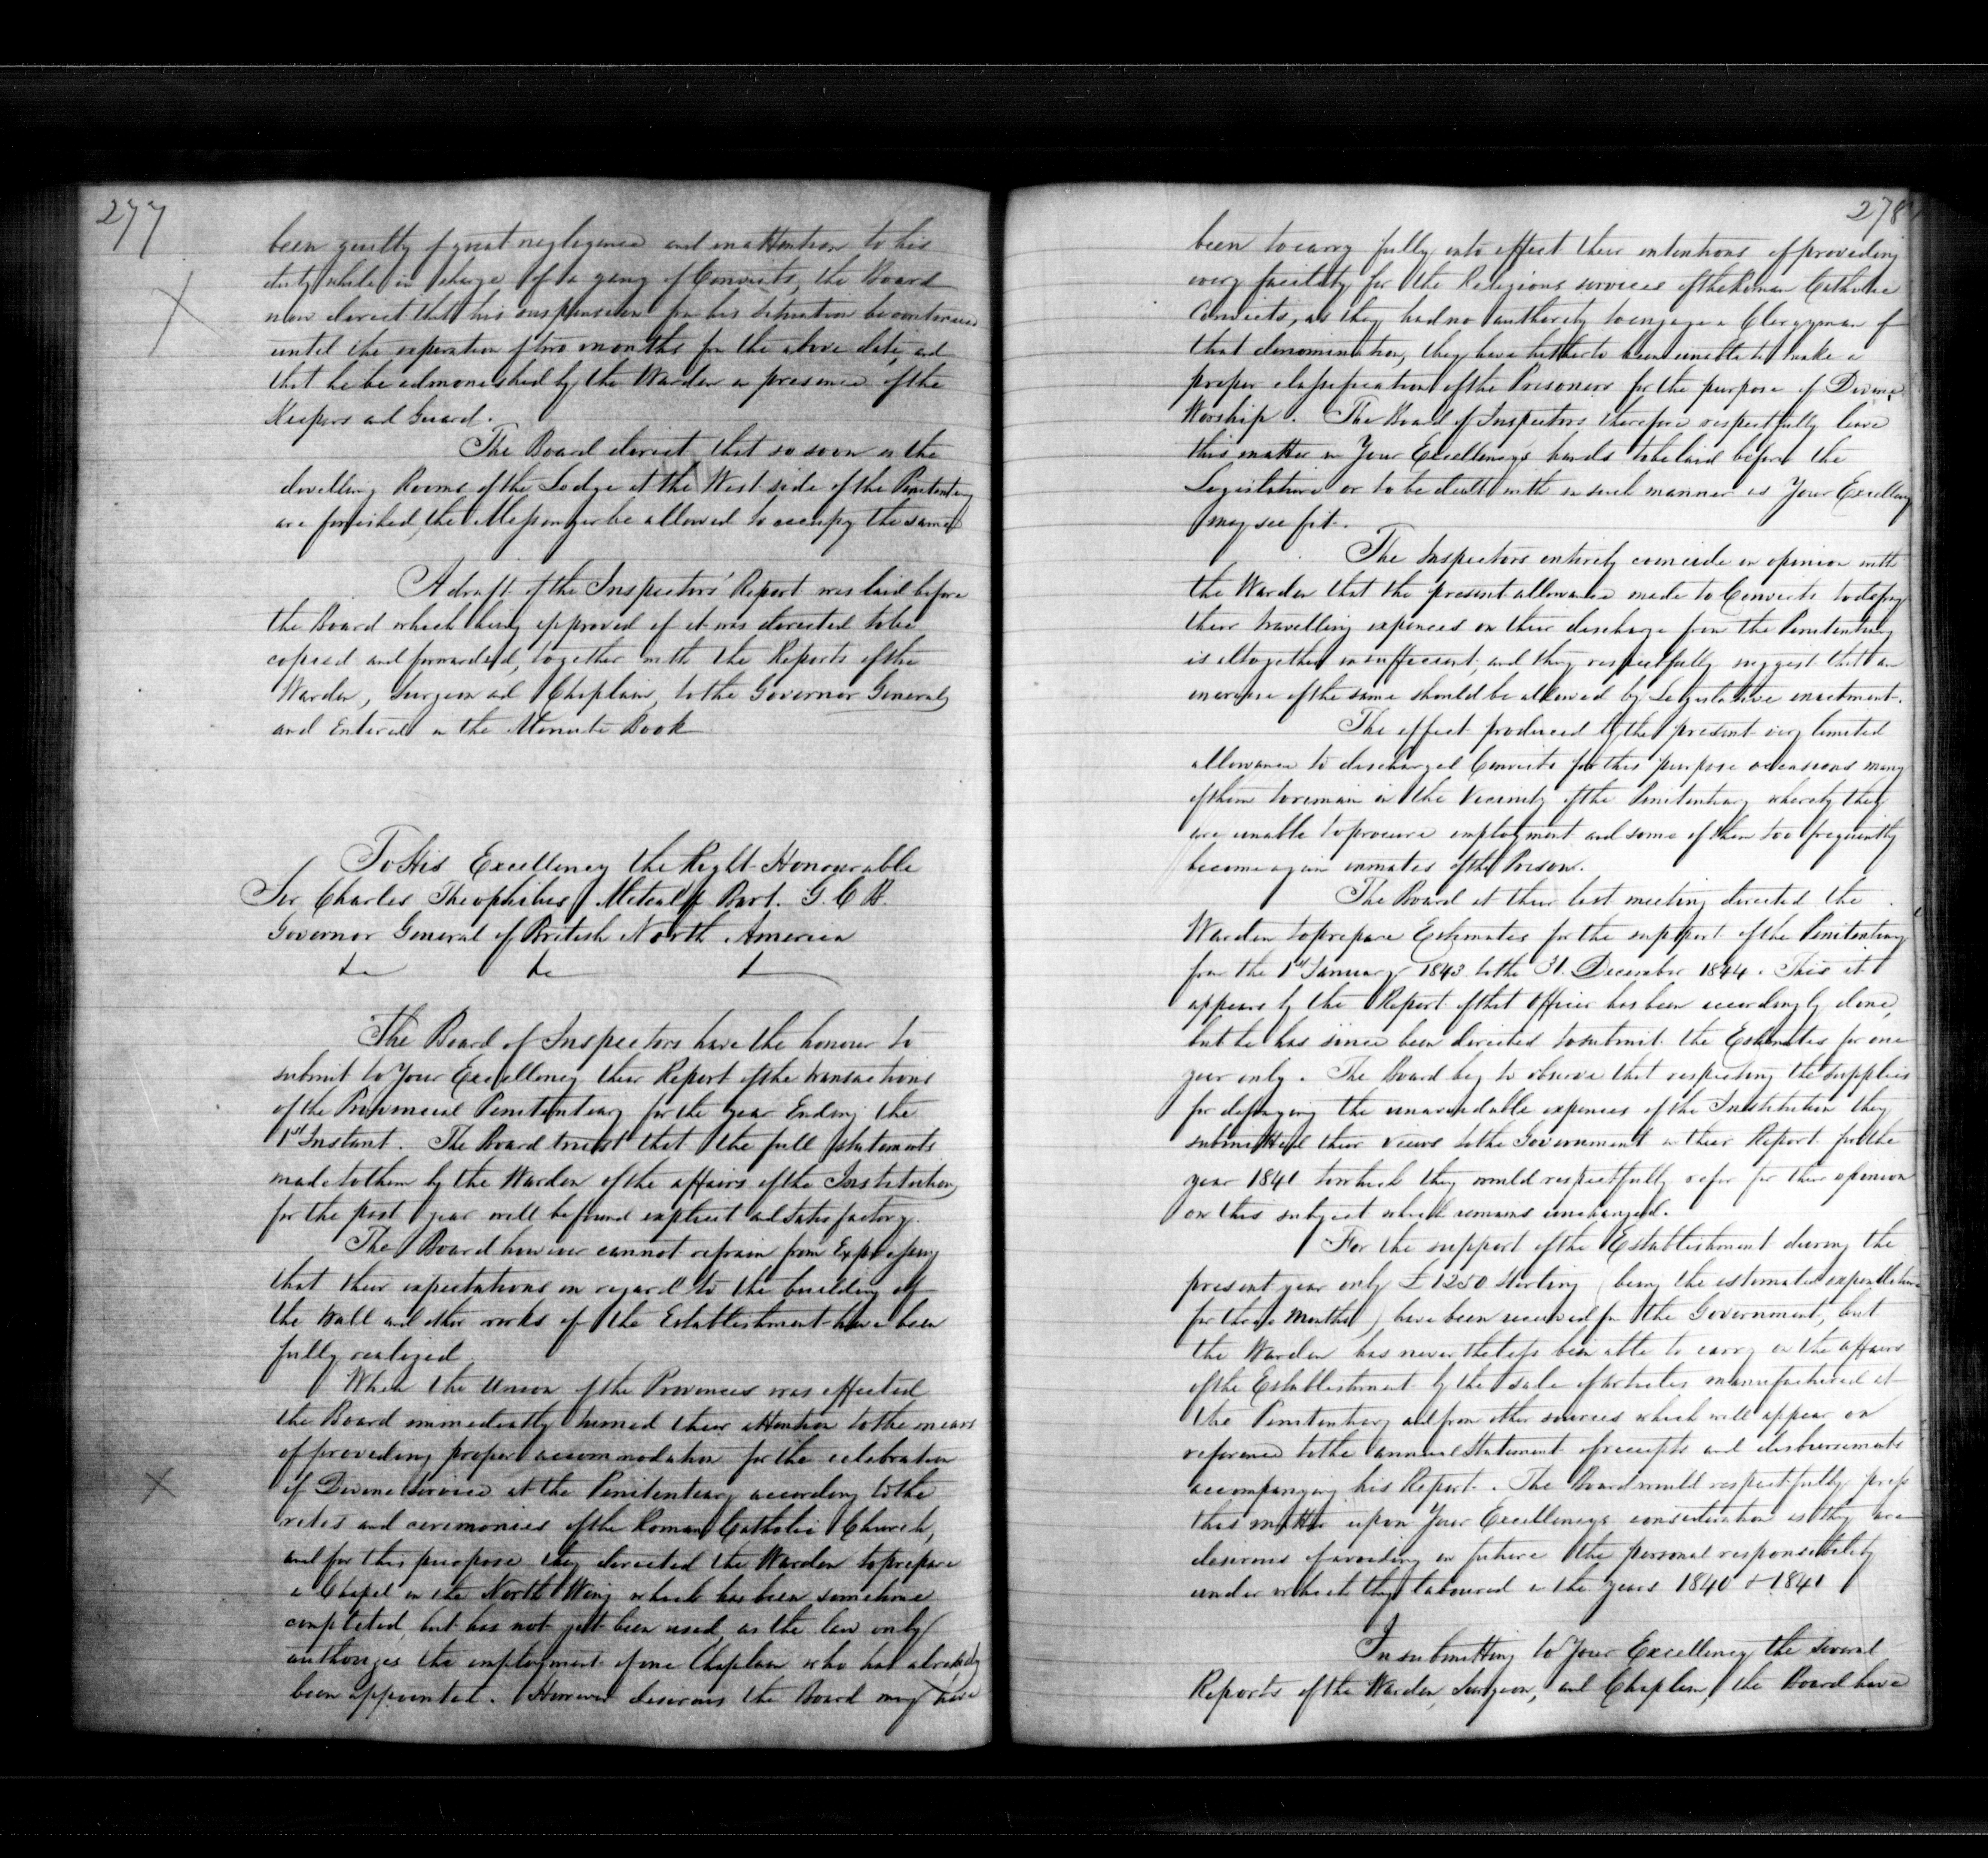 277
been guilty of great negligence and inattention to his
duty while in charge of a gang of Convicts, the Board
now direct that his suspension from his situation be continued
until the expiration of two months from the above date, and
that he be admonished by the Warden in presence of the
Keepers and Guard.
The Board direct that so soon as the
dwelling Rooms of the Lodge at the West side of the Penitentiary
are finished, the Messenger be allowed to occupy the same
A draft of the Inspectors' Report was laid before
the Board which being approved of it was directed to be
copied and forwarded, together with the Reports of the
Warden, Surgeon and Chaplain, to the Governor General,
and Entered in the Minute Book
To His Excellency the Right Honourable
Sir Charles Theophilus Metcalfe Bart. G.C.B.
Governor General of British North America
&c &c &c
The Board of Inspectors have the honour to
submit to Your Excellency their Report of the transactions
of the Provincial Penitentiary for the year Ending the
1st Instant. The Board trust that the full statements
made to them by the Warden of the affairs of the Institution
for the past year will be found explicit and satisfactory.
The Board however cannot refrain from Expressing
that their expectations in regard to the building of
the Wall and other works of the Establishment have been
fully realized
When the Union of the Provinces was effected
the Board immediately turned their attention to the means
of providing proper accommodation for the celebration
of Divine Service at the Penitentiary according to the
rites and ceremonies of the Roman Catholic Church,
and for this purpose they directed the Warden to prepare
a Chapel in the North Wing which has been sometime
completed, but has not yet been used, as the law only
authorizes the employment of one Chaplain who had already
been appointed. However desirous the Board may have
278
been to carry fully into effect their intentions of providing
every facility for the Religious services of the Roman Catholic
Convicts, as they had no authority to engage a Clergyman of
that denomination, they have hitherto been unable to make a
proper classification of the Prisoners for the purpose of Divine
Worship. The Board of Inspectors therefore respectfully leave
this matter in Your Excellency's hands to be laid before the
Legislature or to be dealt with in such manner as Your Excellency
may see fit.
The Inspectors entirely coincide in opinion with
the Warden that the present allowance made to Convicts to defray
their travelling expences on their discharge from the Penitentiary
is altogether insufficient, and they respectfully suggest that an
increase of the same should be allowed by Legislative enactment.
The effect produced by the present very limited
allowance to discharged Convicts for this purpose occasions many
of them to remain in the vicinity of the Penitentiary whereby they
are unable to procure employment and some of them too frequently
become again inmates of the Prison.
The Board at their last meeting directed the
Warden to prepare Estimates for the support of the Penitentiary
from the 1st January 1843 to the 31. December 1844. This it
appears by the Report of that Officer has been accordingly done,
but he has since been directed to submit the Estimates for one
year only. The Board beg to observe that respecting the supplies
for defraying the unavoidable expences of the Institution they
submitted their views to the Government in their Report for the
year 1841 to which they would respectfully refer for their opinion
on this subject which remains unchanged.
For the support of the Establishment during the
present year only £1250 Sterling (being the estimated expenditure
for three Months) have been received from the Government, but
the Warden has nevertheless been able to carry on the affairs
of the Establishment by the sale of articles manufactured at
the Penitentiary and from other sources which will appear on
reference to the annual Statement of receipts and disbursements
accompanying his Report. The Board would respectfully press
this matter upon Your Excellency's consideration as they are
desirous of avoiding in future the personal responsibility
under which they laboured in the years 1840 & 1841
In submitting to Your Excellency the several
Reports of the Warden, Surgeon, and Chaplain, the Board have